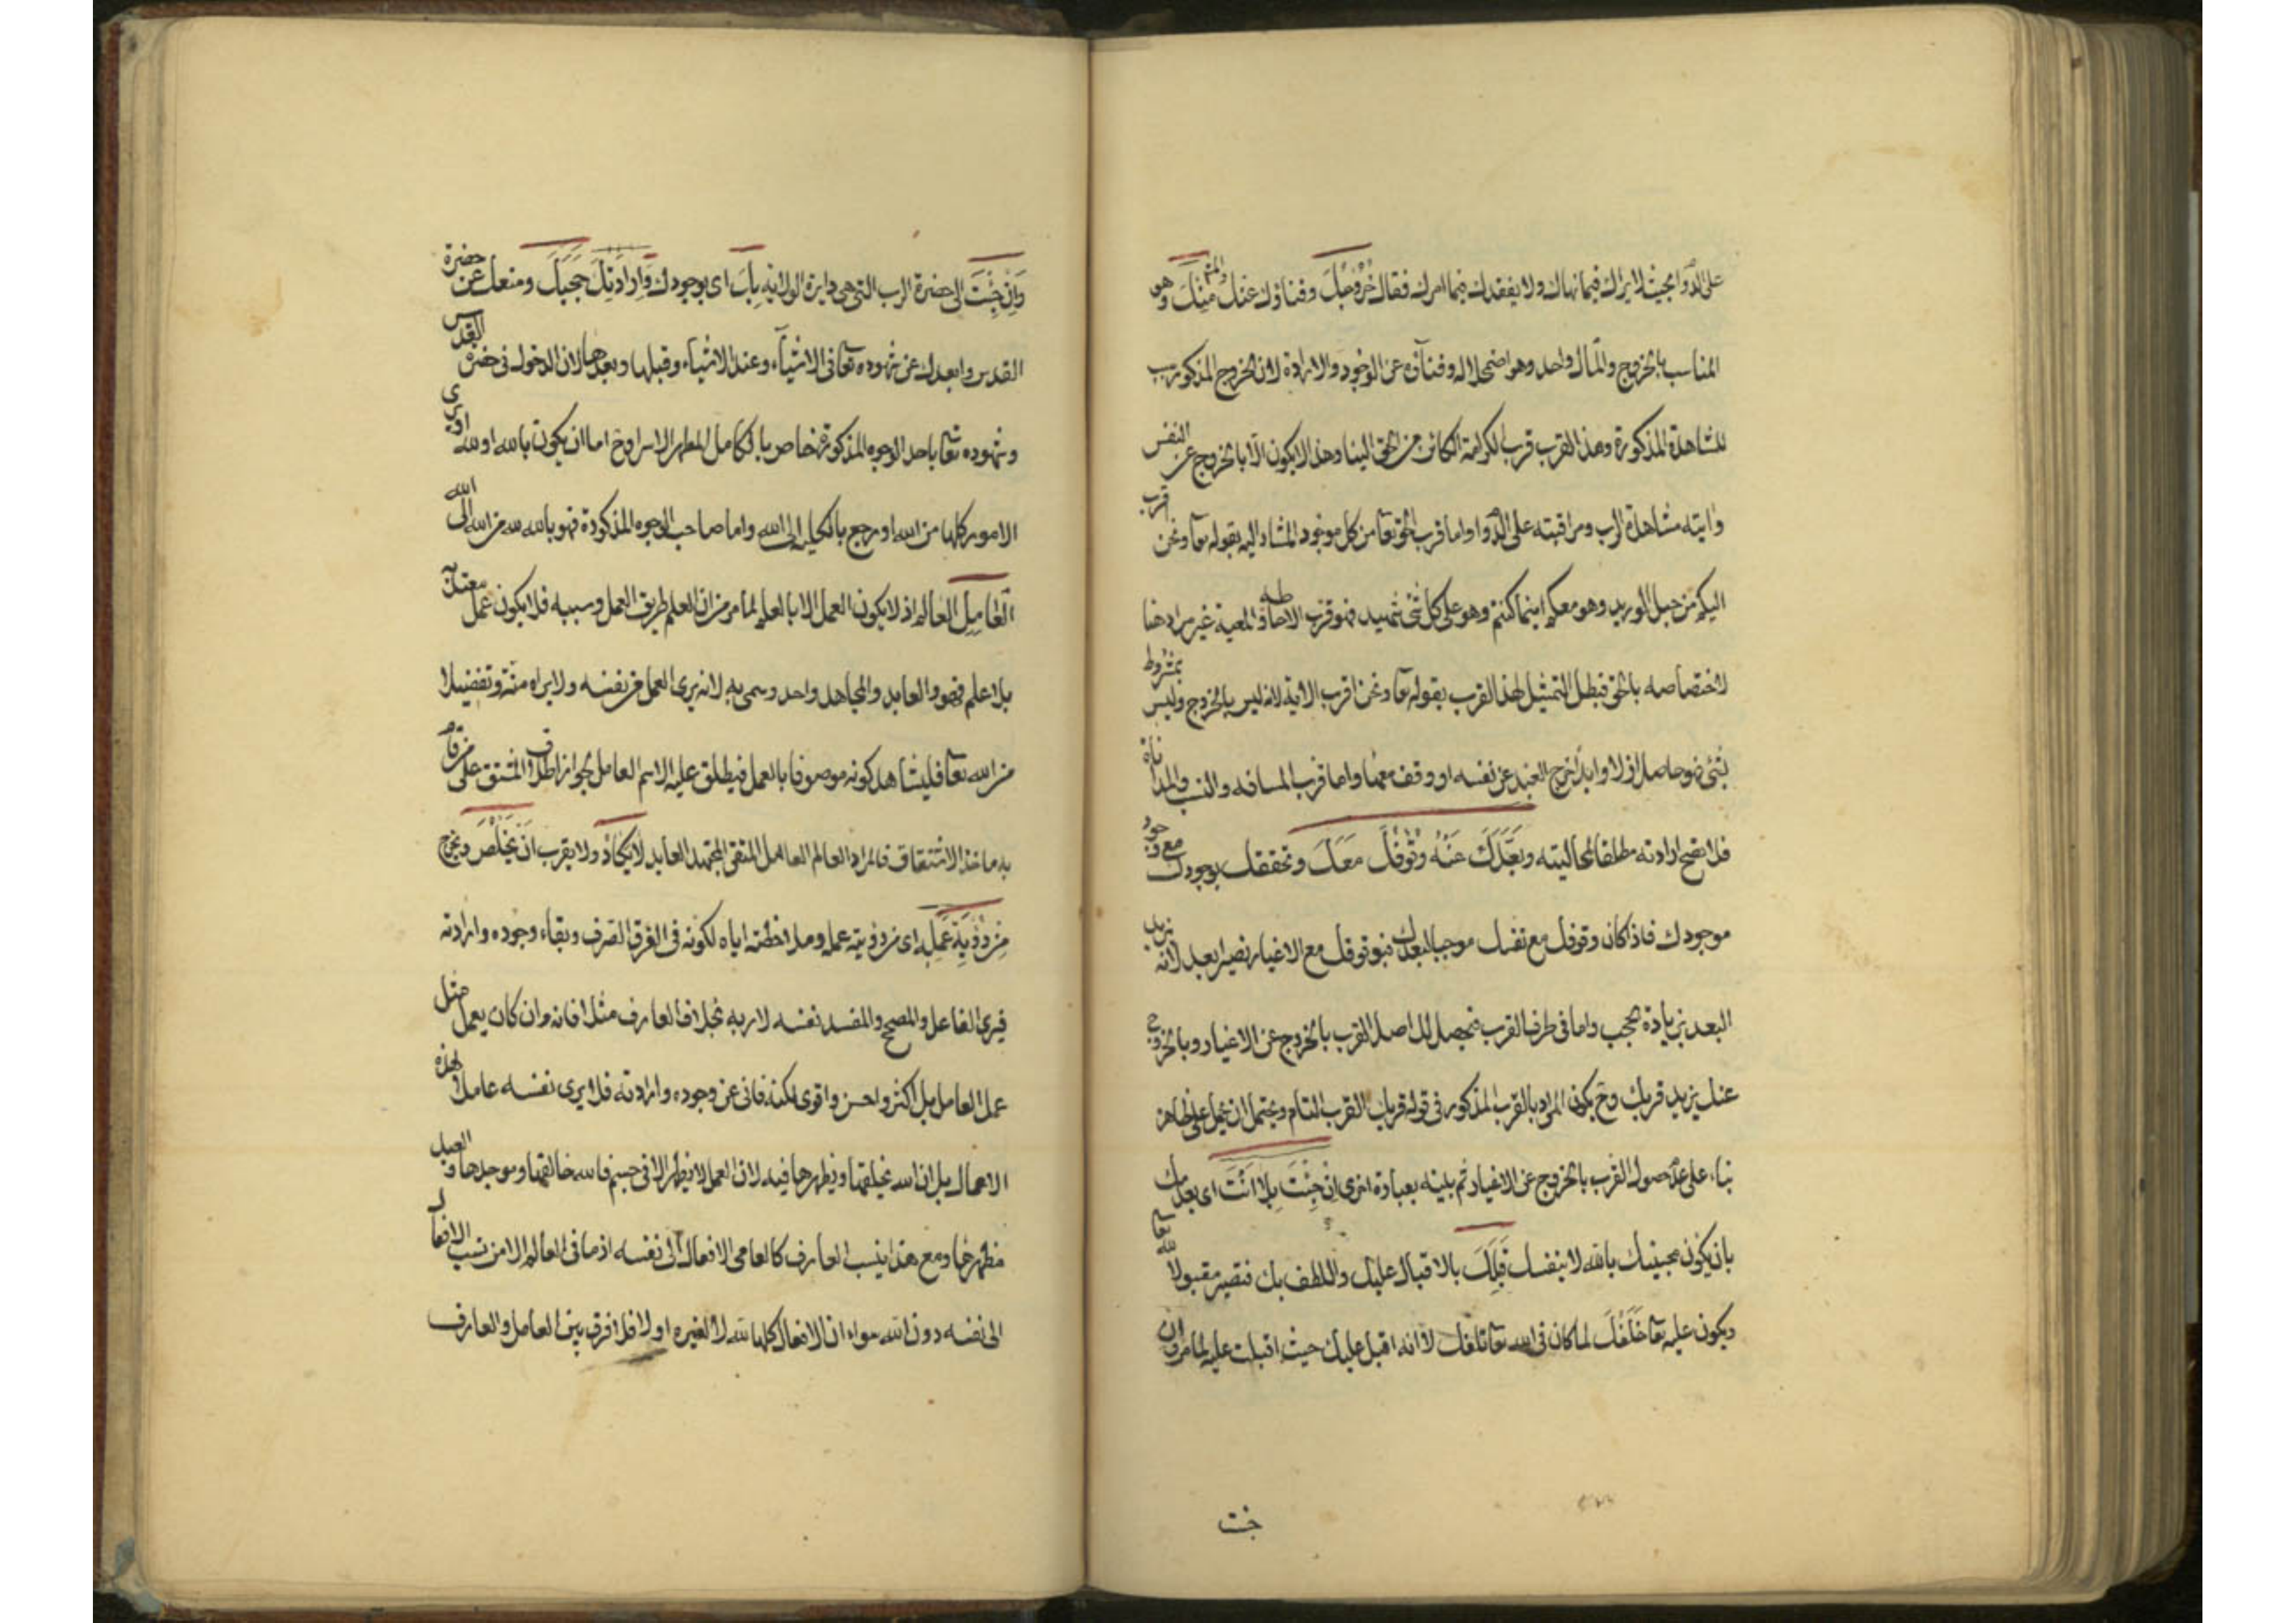 على الدوام بحيث لا يراك فيما نهاك ولا يفقدك فيما امرك فقال خُرُوجُكَ وفناؤك عنك والمش مِنْكَ وهو
المناسب بالخروج والمآل واحد وهو اضمحلاله وفناؤه عن الوجود والارادة لان الخروج المذكور سبب
للمشاهدة المذكورة وهذا القرب قرب الكرامة الكائن من الحق الينا وهذا لا يكون الا بالخروج عن النفس
واينه مشاهدة الرب ومراقبته على الدوام واما قرب الحق تعا من كل موجود المشار اليه بقوله تعا ونحن اقرب
اليكم من حبل الوريد وهو معكم اينما كنتم وهو على كل شئ شهيد فهو قرب الاحاطه والمعية غير مراد هنا
لاختصاصه بالحق فبطل التمثيل لهذا القرب بقوله تعا ونحن اقرب الاية لانه ليس بالخروج وليس بمشروط
بشئ فهو حاصل ازلا وابدا خرج العبد عن نفسه او وقف معها واما قرب المسافه والنسب والمداناة
فلا تصح ارادته مطلقا لمحاليته وبَعَّدَكَ عَنْهُ وُقُوفُكَ مَعَكَ وتحققك بوجودك مع وجود
موجودك فاذا كان وقوفك مع نفسك موجبا لبعدك فبوقوفك مع الاغيار تصير ابعد لانه يزيد
البعد بزيادة الحجب واما فى طرف القرب فيحصل لك اصل القرب بالخروج عن الاغيار وبالخروج
عنك يزيد قربك وح يكون المراد بالقرب المذكور فى قوله قربك القرب التام ويحتمل ان يحمل على ظاهره
بناء على عدم حصول القرب بالخروج عن الاغيار ثم بينه بعبارة اخرى اِنْ جِئْتَ بِلَا اَنْتَ اى بعدمك
بان يكون مجيئك بالله لا بنفسك قَبِلَكَ بالاقبال عليك واللطف بك فتصير مقبولا لله تعا
ويكون عليه تعا خَلَفُكَ لما كان فى الله تعا تلفك لانه اقبل عليك حيث اقبلت عليه لما مر وان
جئت
وَاِنْ جِئْتَ الى حضرة الرب التى هى دايرة الولاية بِكَ اى بوجودك وَاِرَادَتِكَ حَجَبَكَ ومنعك عن حضرة
القدس وابعدك عن شهوده تعا فى الاشياء وعند الاشياء وقبلها وبعدها لان الدخول فى حضرة القدس
وشهوده تعا باحد الوجوه المذكورة خاص بالكامل المطهر الاسرار وح اما ان يكون بالله او لله او يرى
الامور كلها من الله او رجع بالكلية الى الله واما صاحب الوجوه المذكورة فهو بالله لله من الله الى الله
اَلْعَامِلُ العالم اذ لا يكون العمل الا بالعلم لما مر من ان العلم طريق العمل وسببه فلا يكون عمل معتد به
بلا علم فهو والعابد والمجاهد واحد وسمى به لانه يرى العمل من نفسه ولا يراه منة وتفضيلا
من الله تعا فليشاهد كونه موصوفا بالعمل فيطلق عليه الاسم العامل لجواز اطلاق المشتق على من قام
به ماخذ الاشتقاق فالمراد العالم العامل المتقى المجتهد العابد لَا يَكَادُ ولا يقرب اَنْ يَخْلُصَ ويخرج
مِنْ رُؤْيَةِ عَمَلِهِ اى من رؤيته عمله وملاحظته اياه لكونه فى الفرق الصرف وبقاء وجوده وارادته
فيرى الفاعل والمصلح والمفسد نفسه لا ربه بخلاف العارف مثلا فانه وان كان يعمل مثل
عمل العامل بل اكثر واحسن واقوى لكنه فانى عن وجوده وارادته فلا يرى نفسه عاملا لهذه
الاعمال بل ان الله يخلقها ويظهرها فيه لان العمل لا يظهر الا فى جسم فالله خالقها وموجدها والعبد
مظهرها ومع هذا ينسب العارف كالعامى الافعال الى نفسه اذ ما فى العالم الا من نسب الافعال
الى نفسه دون الله سواء ان الافعال كلها لله لا لغيره او لا فلا فرق بين العامل والعارف